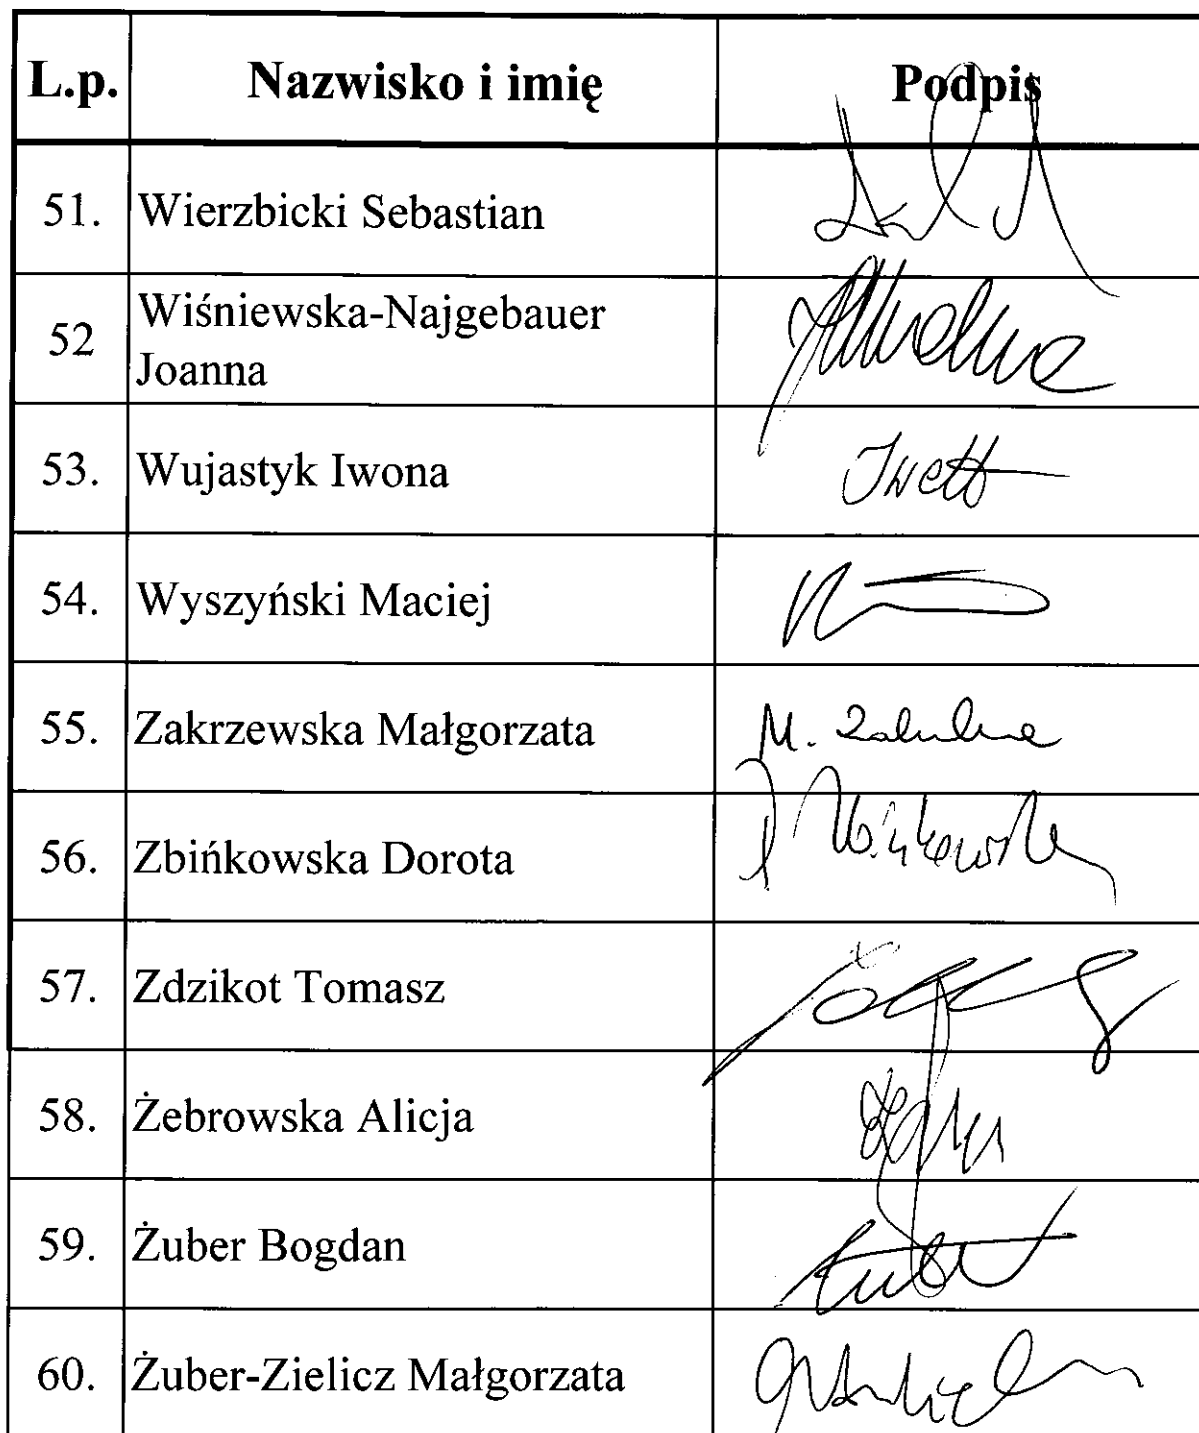 L.p. Nazwisko i imię Podpis
51. Wierzbicki Sebastian
52 Wiśniewska-Najgebauer
Joanna
53. Wujastyk Iwona
54. Wyszyński Maciej
55. Zakrzewska Małgorzata M.
56. Zbińkowska Dorota
57. Zdzikot Tomasz
58. Żebrowska Alicja
59. Żuber Bogdan
60. Żuber-Zielicz Małgorzata